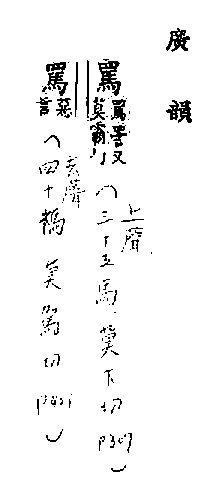 廣韻
罵 罵詈又莫霸切 (三十五馬 莫下切 p307)
上聲
罵 惡言 (四十禡 莫駕切
去聲